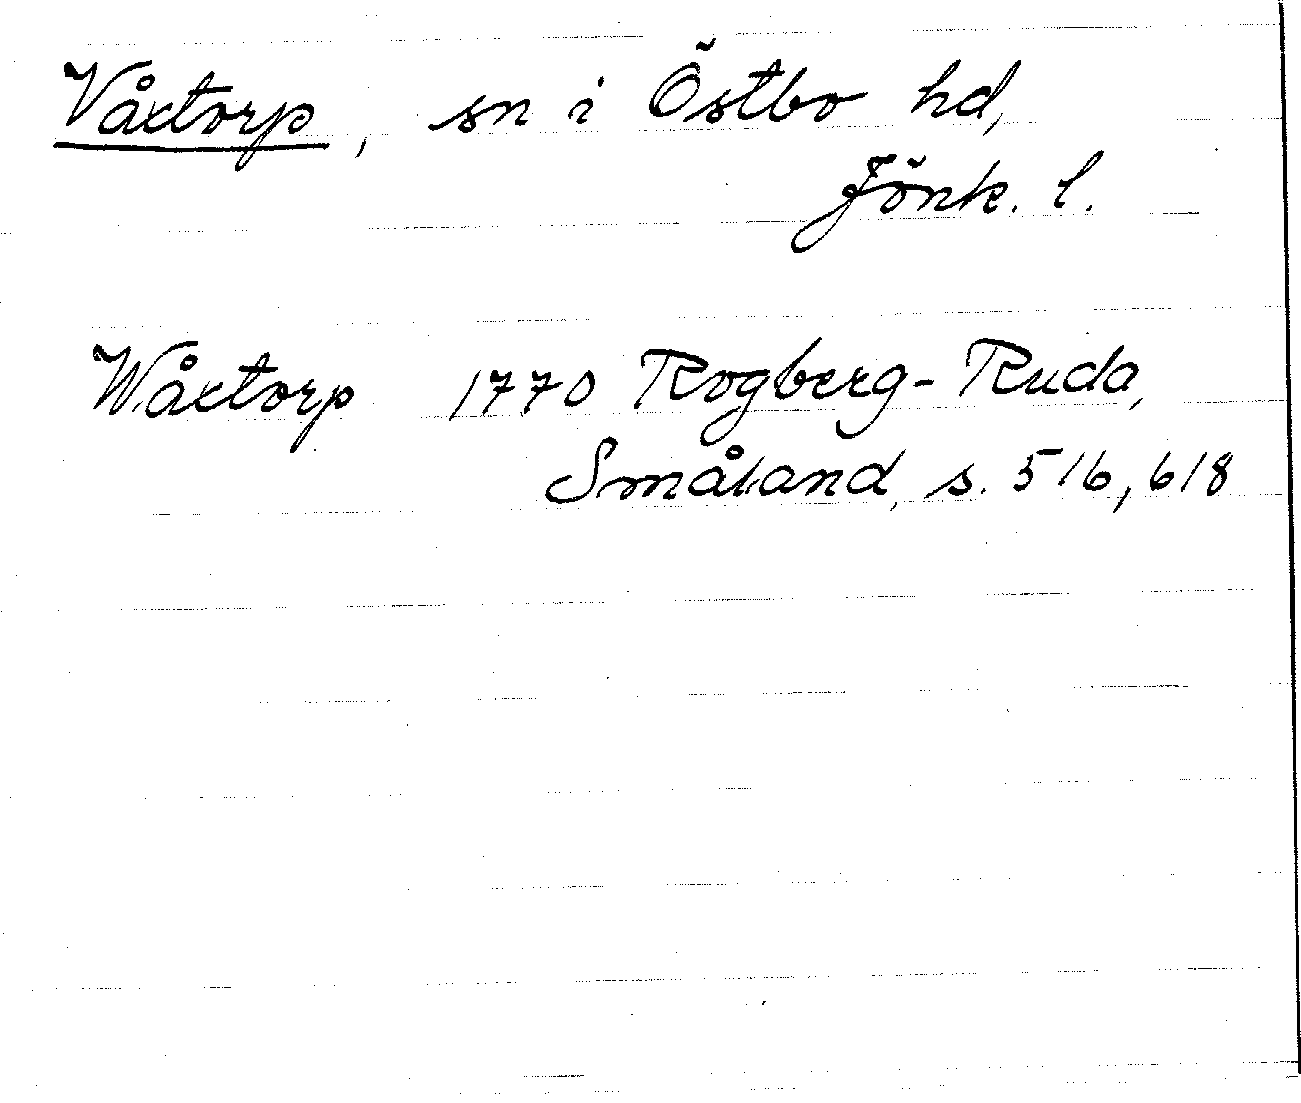 Våxtorp, sn i Östbo hd,
Jönk. l.
Wåxtorp 1770 Rogberg-Ruda,
Småland, s. 516, 618